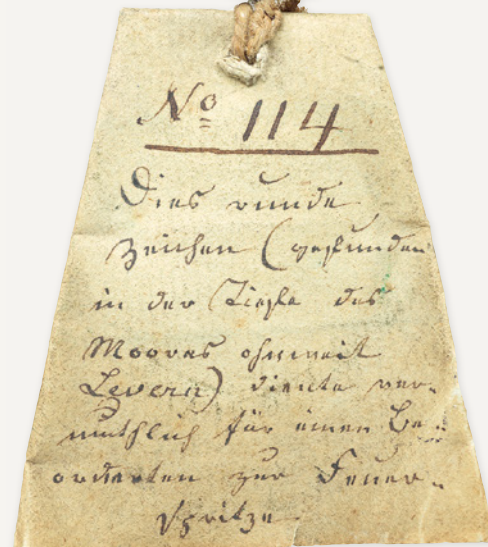 No 114
Dies runde
Zeichen (gefunden
in der Tiefe des
Moores ohnweit
Levern) diente ver-
muthlich für einen Be-
orderten zur Feuer-
spritze